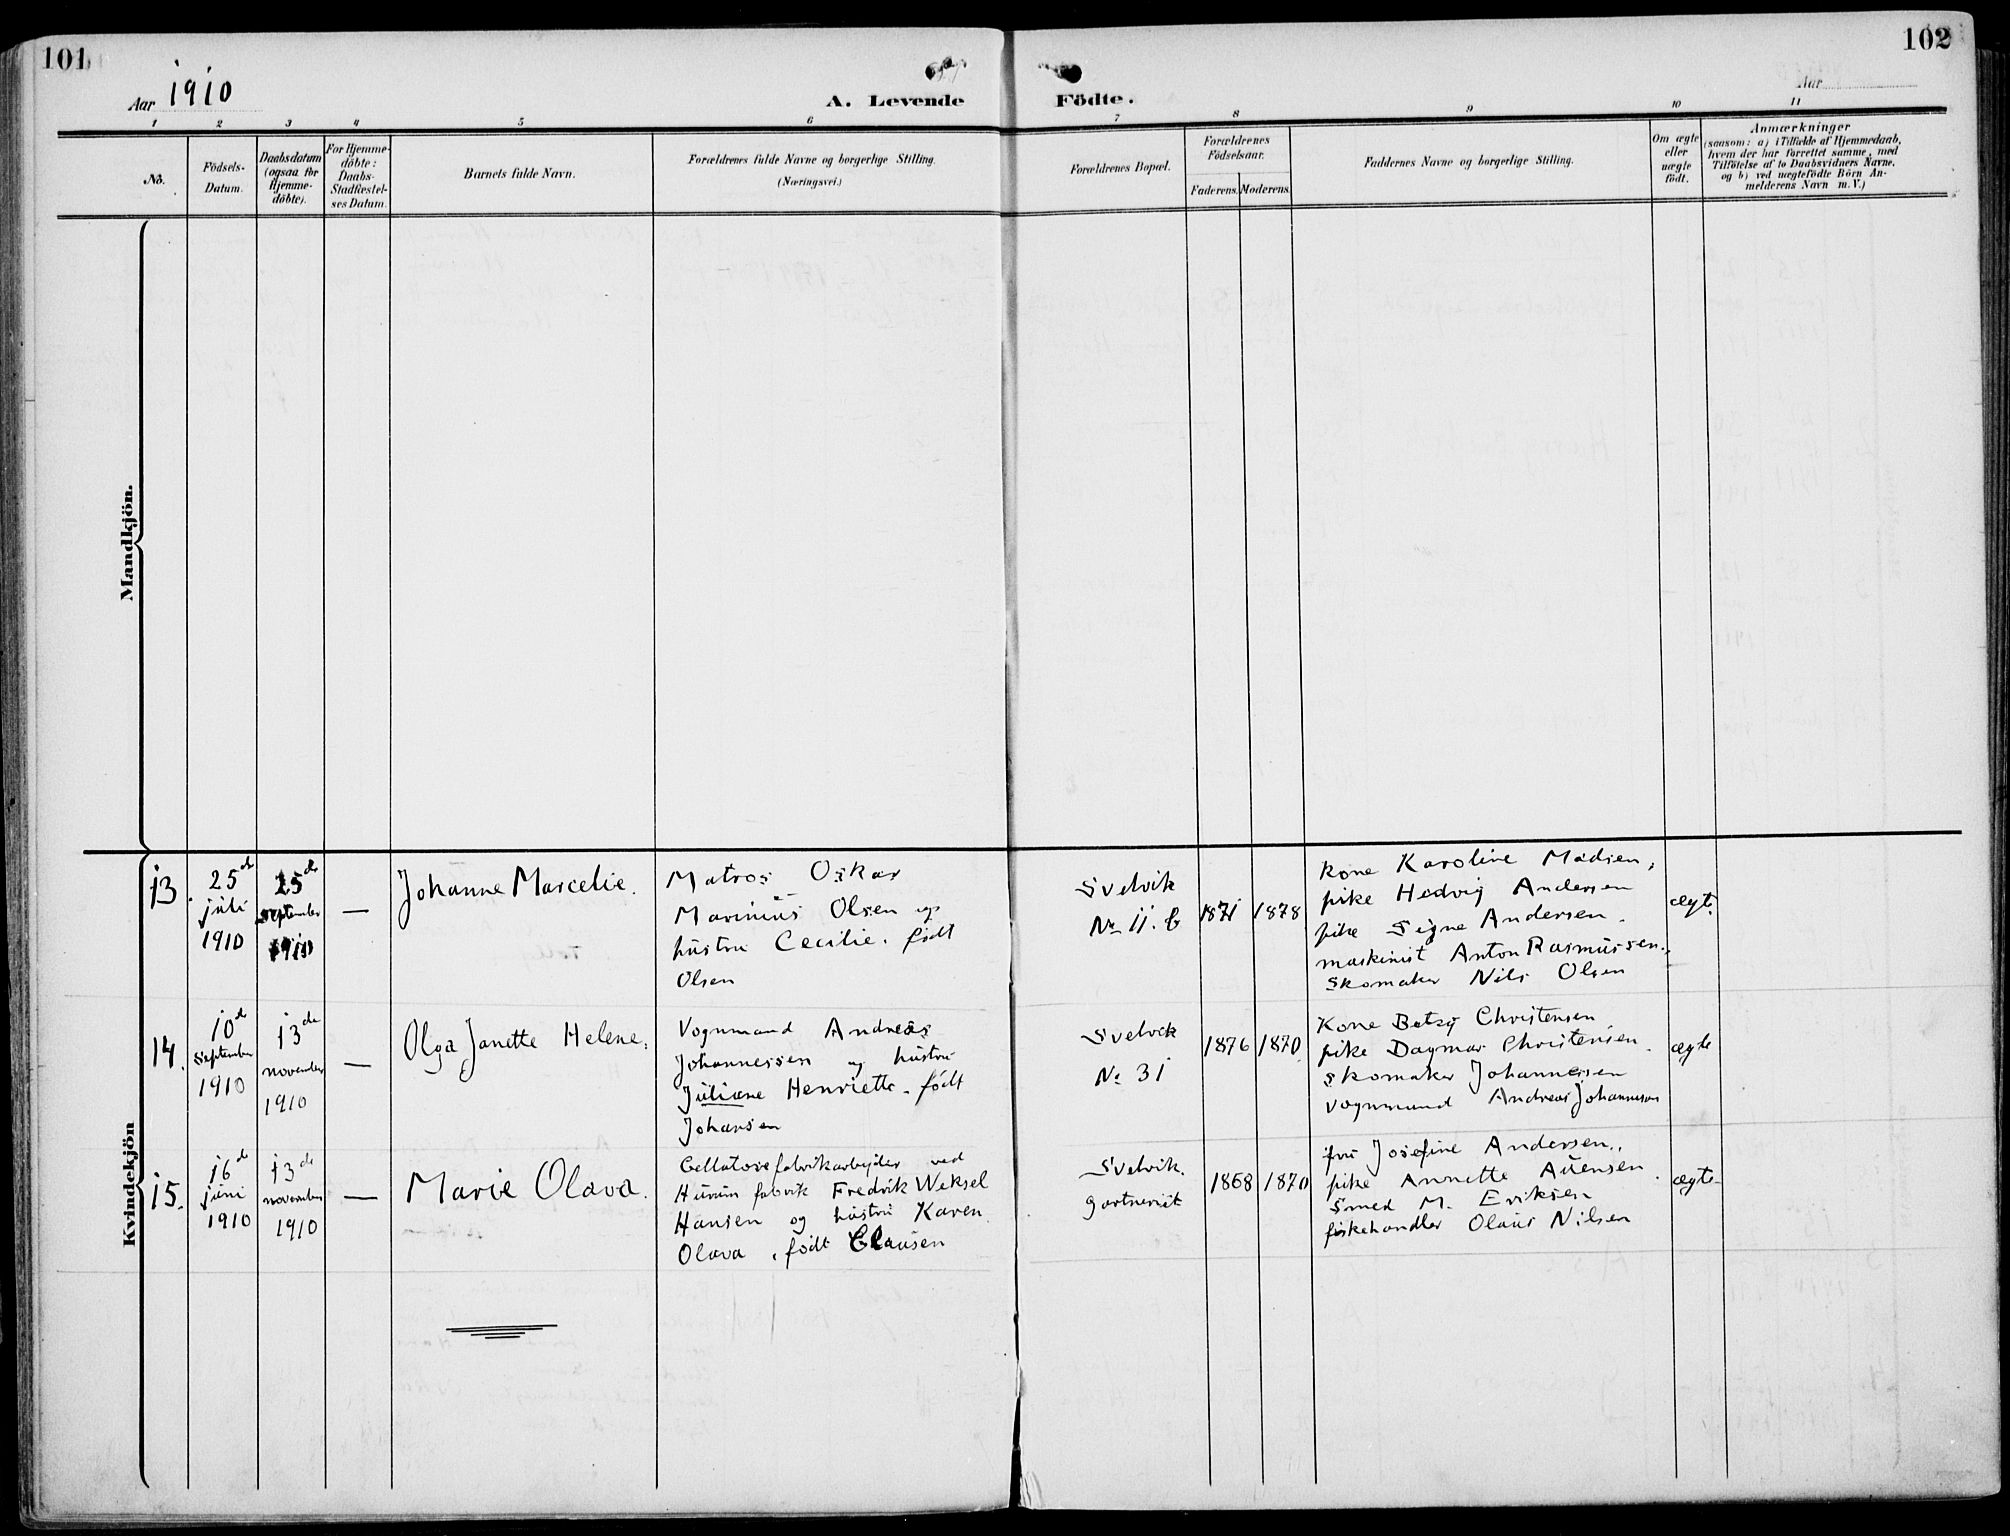 101
102
Aar 1910
A. Levende Födte.
Aar
1 2 3 4 5 6 7 8 9 10 11
No.
Födsels-
Datum.
Daabsdatum
(ogsaa for
Hjemme-
döbte).
For Hjemme-
döbte:
Daabs-
Stadfæstel-
ses Datum.
Barnets fulde Navn.
Forældrenes fulde Navne og borgerlige Stilling.
(Næringsvei.)
Forældrenes Bopæl.
Forældrenes
Födselsaar.
Faderens. Moderens.
Faddernes Navne og borgerlige Stilling.
Om ægte
eller
uægte
födt.
Anmærkninger
(saasom: a) i Tilfælde af Hjemmedaab,
hvem der har forrettet samme, med
Tilföielse af to Daabsvidners Navne,
og b) ved uægtefödte Börn An-
melderens Navn m. V.)
Mandkjön.
Kvindekjön
13.
25de
juli
1910
25de
september
1910
—
Johanne Marcelie.
Matros Oskar
Marinius Olsen og
hustru Cecilie. født
Olsen
Svelvik
No 11. b
1871
1878
Kone Karoline Madsen,
pike Hedvig Andersen
pike Signe Andersen.
maskinist Anton Rasmussen.,
skomaker Nils Olsen
ægt.
14.
10de
september
1910
13de
november
1910
—
Olga Janette Helene.
Vognmand Andreas
Johannessen og hustru
Juliane Henriette. født
Johansen
Svelvik
No 31
1876
1870
Kone Betsy Christensen
pike Dagmar Christensen.
skomaker Johannessen
vognmand Andreas Johannesen
ægte
15.
16de
juni
1910
13de
november
1910
—
Marie Olava.
Cellulosefabrikarbeyder ved
Hurum fabrik Fredrik Weksel
Hansen og hustru Karen
Olava, født Clausen
Svelvik.
gartneriet
1868
1870
fru Josefine Andersen,
pike Annette Auensen.
Smed M. Eriksen
fiskehandler Olaus Nilsen
ægte